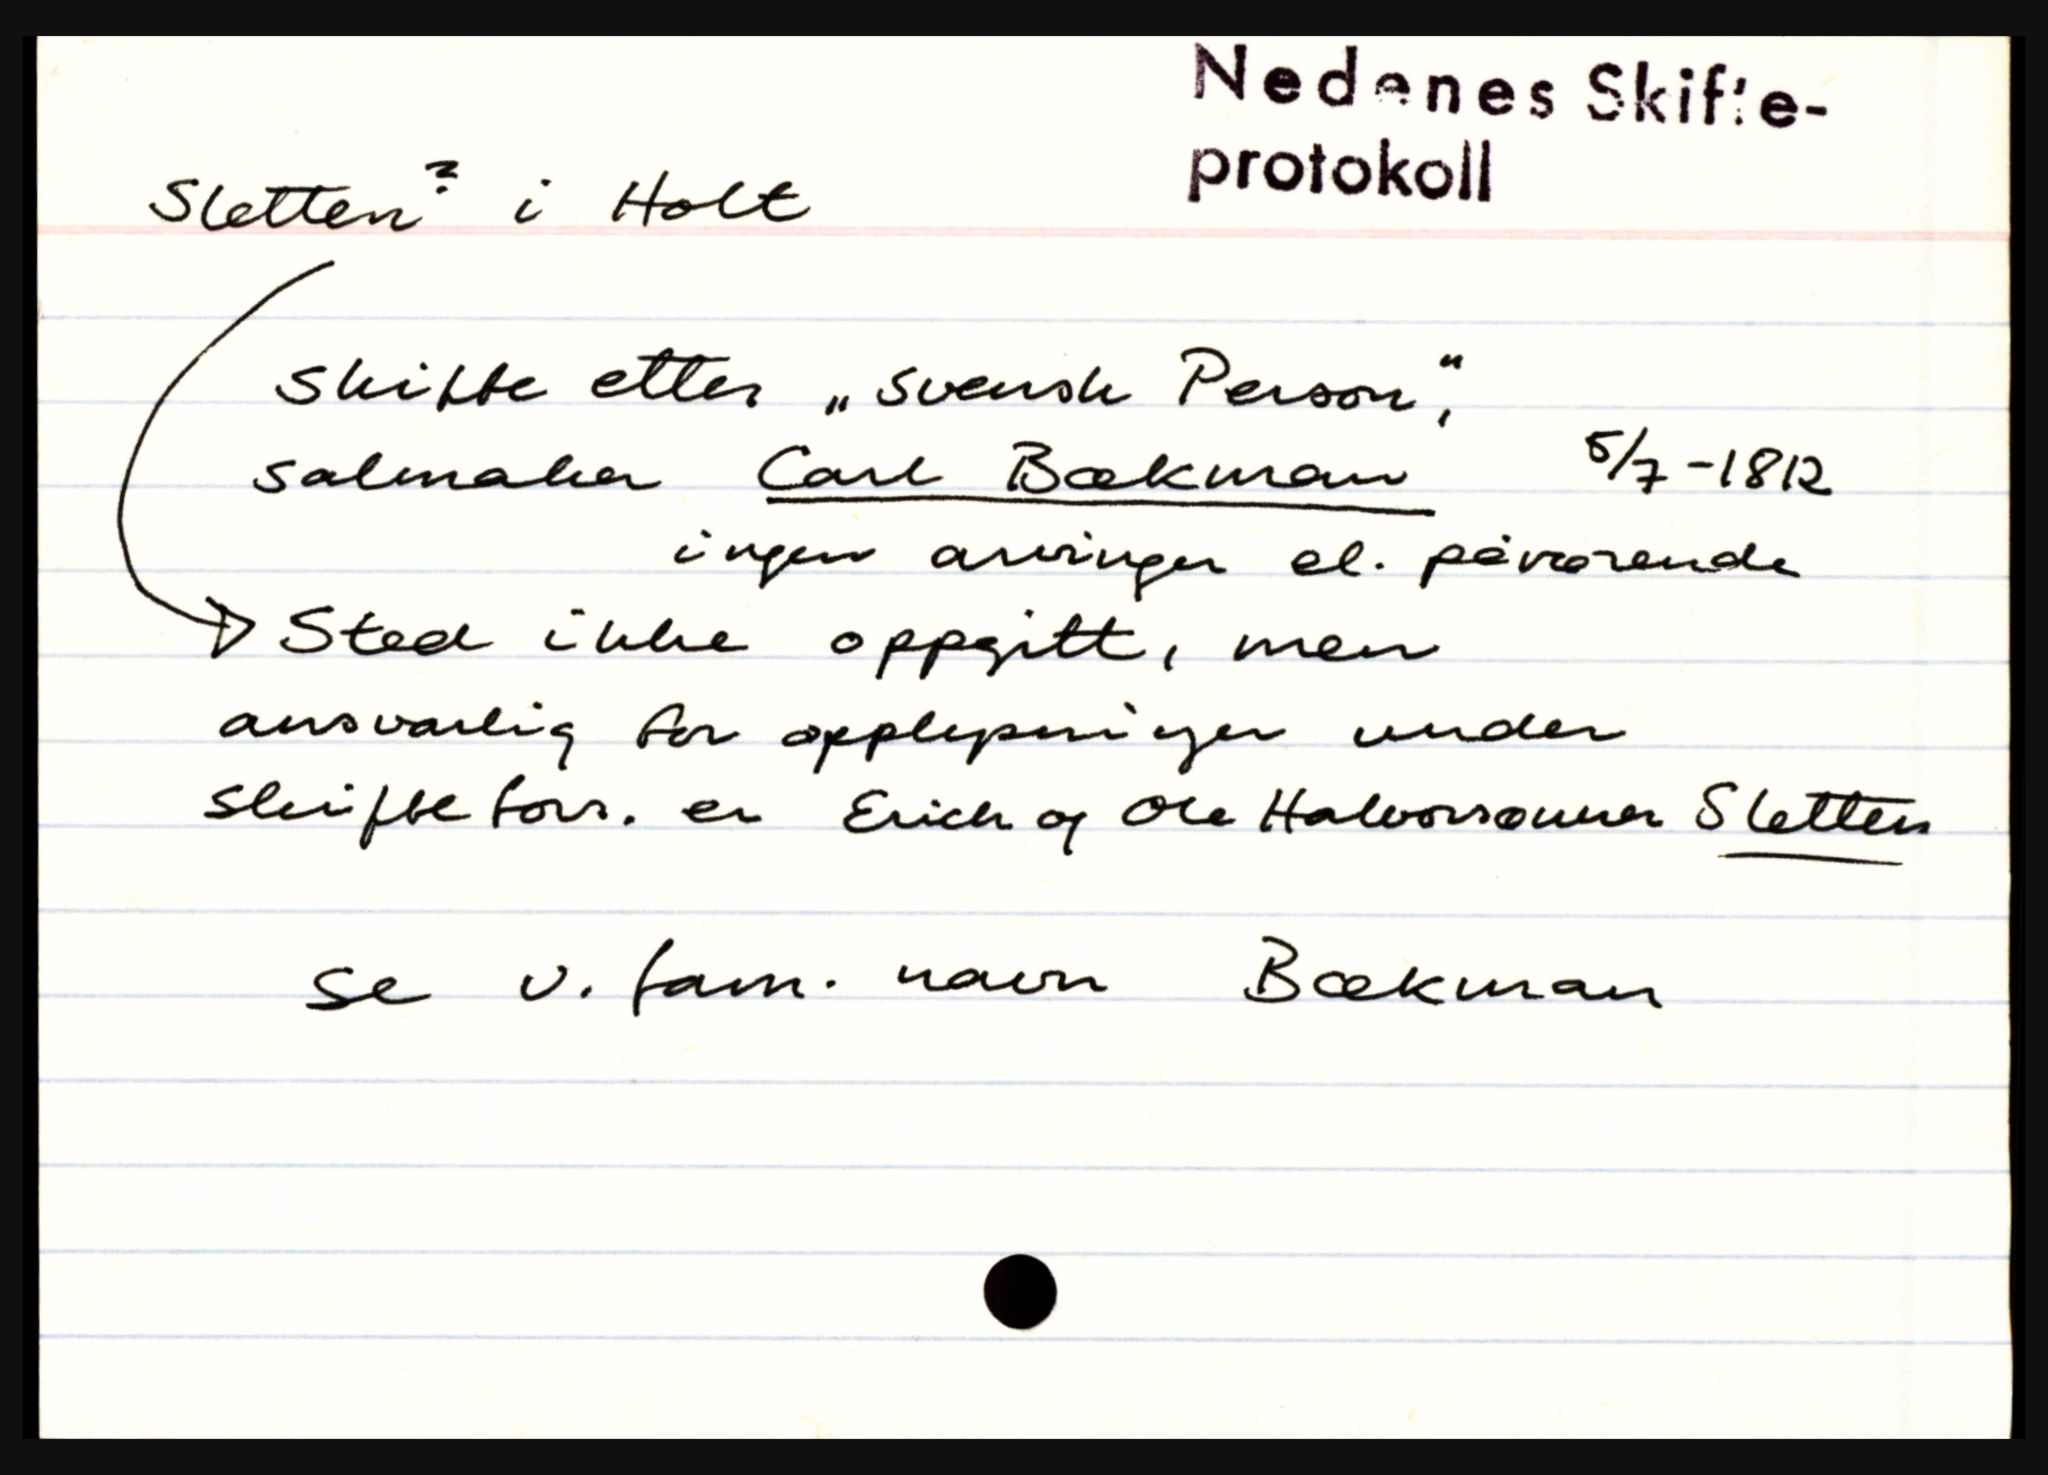 Nedenes Skifte-
protokoll
Sletten? i Holt
skifte etter „svensk Person“,
salmaker Carl Bækman 5/7-1812
ingen arvinger el. påværende
Sted ikke oppgitt, men
ansvarlig for opplysninger under
skiftefors. er Erich og Ole Halvorsønner Sletten
se v. fam. navn Bækman